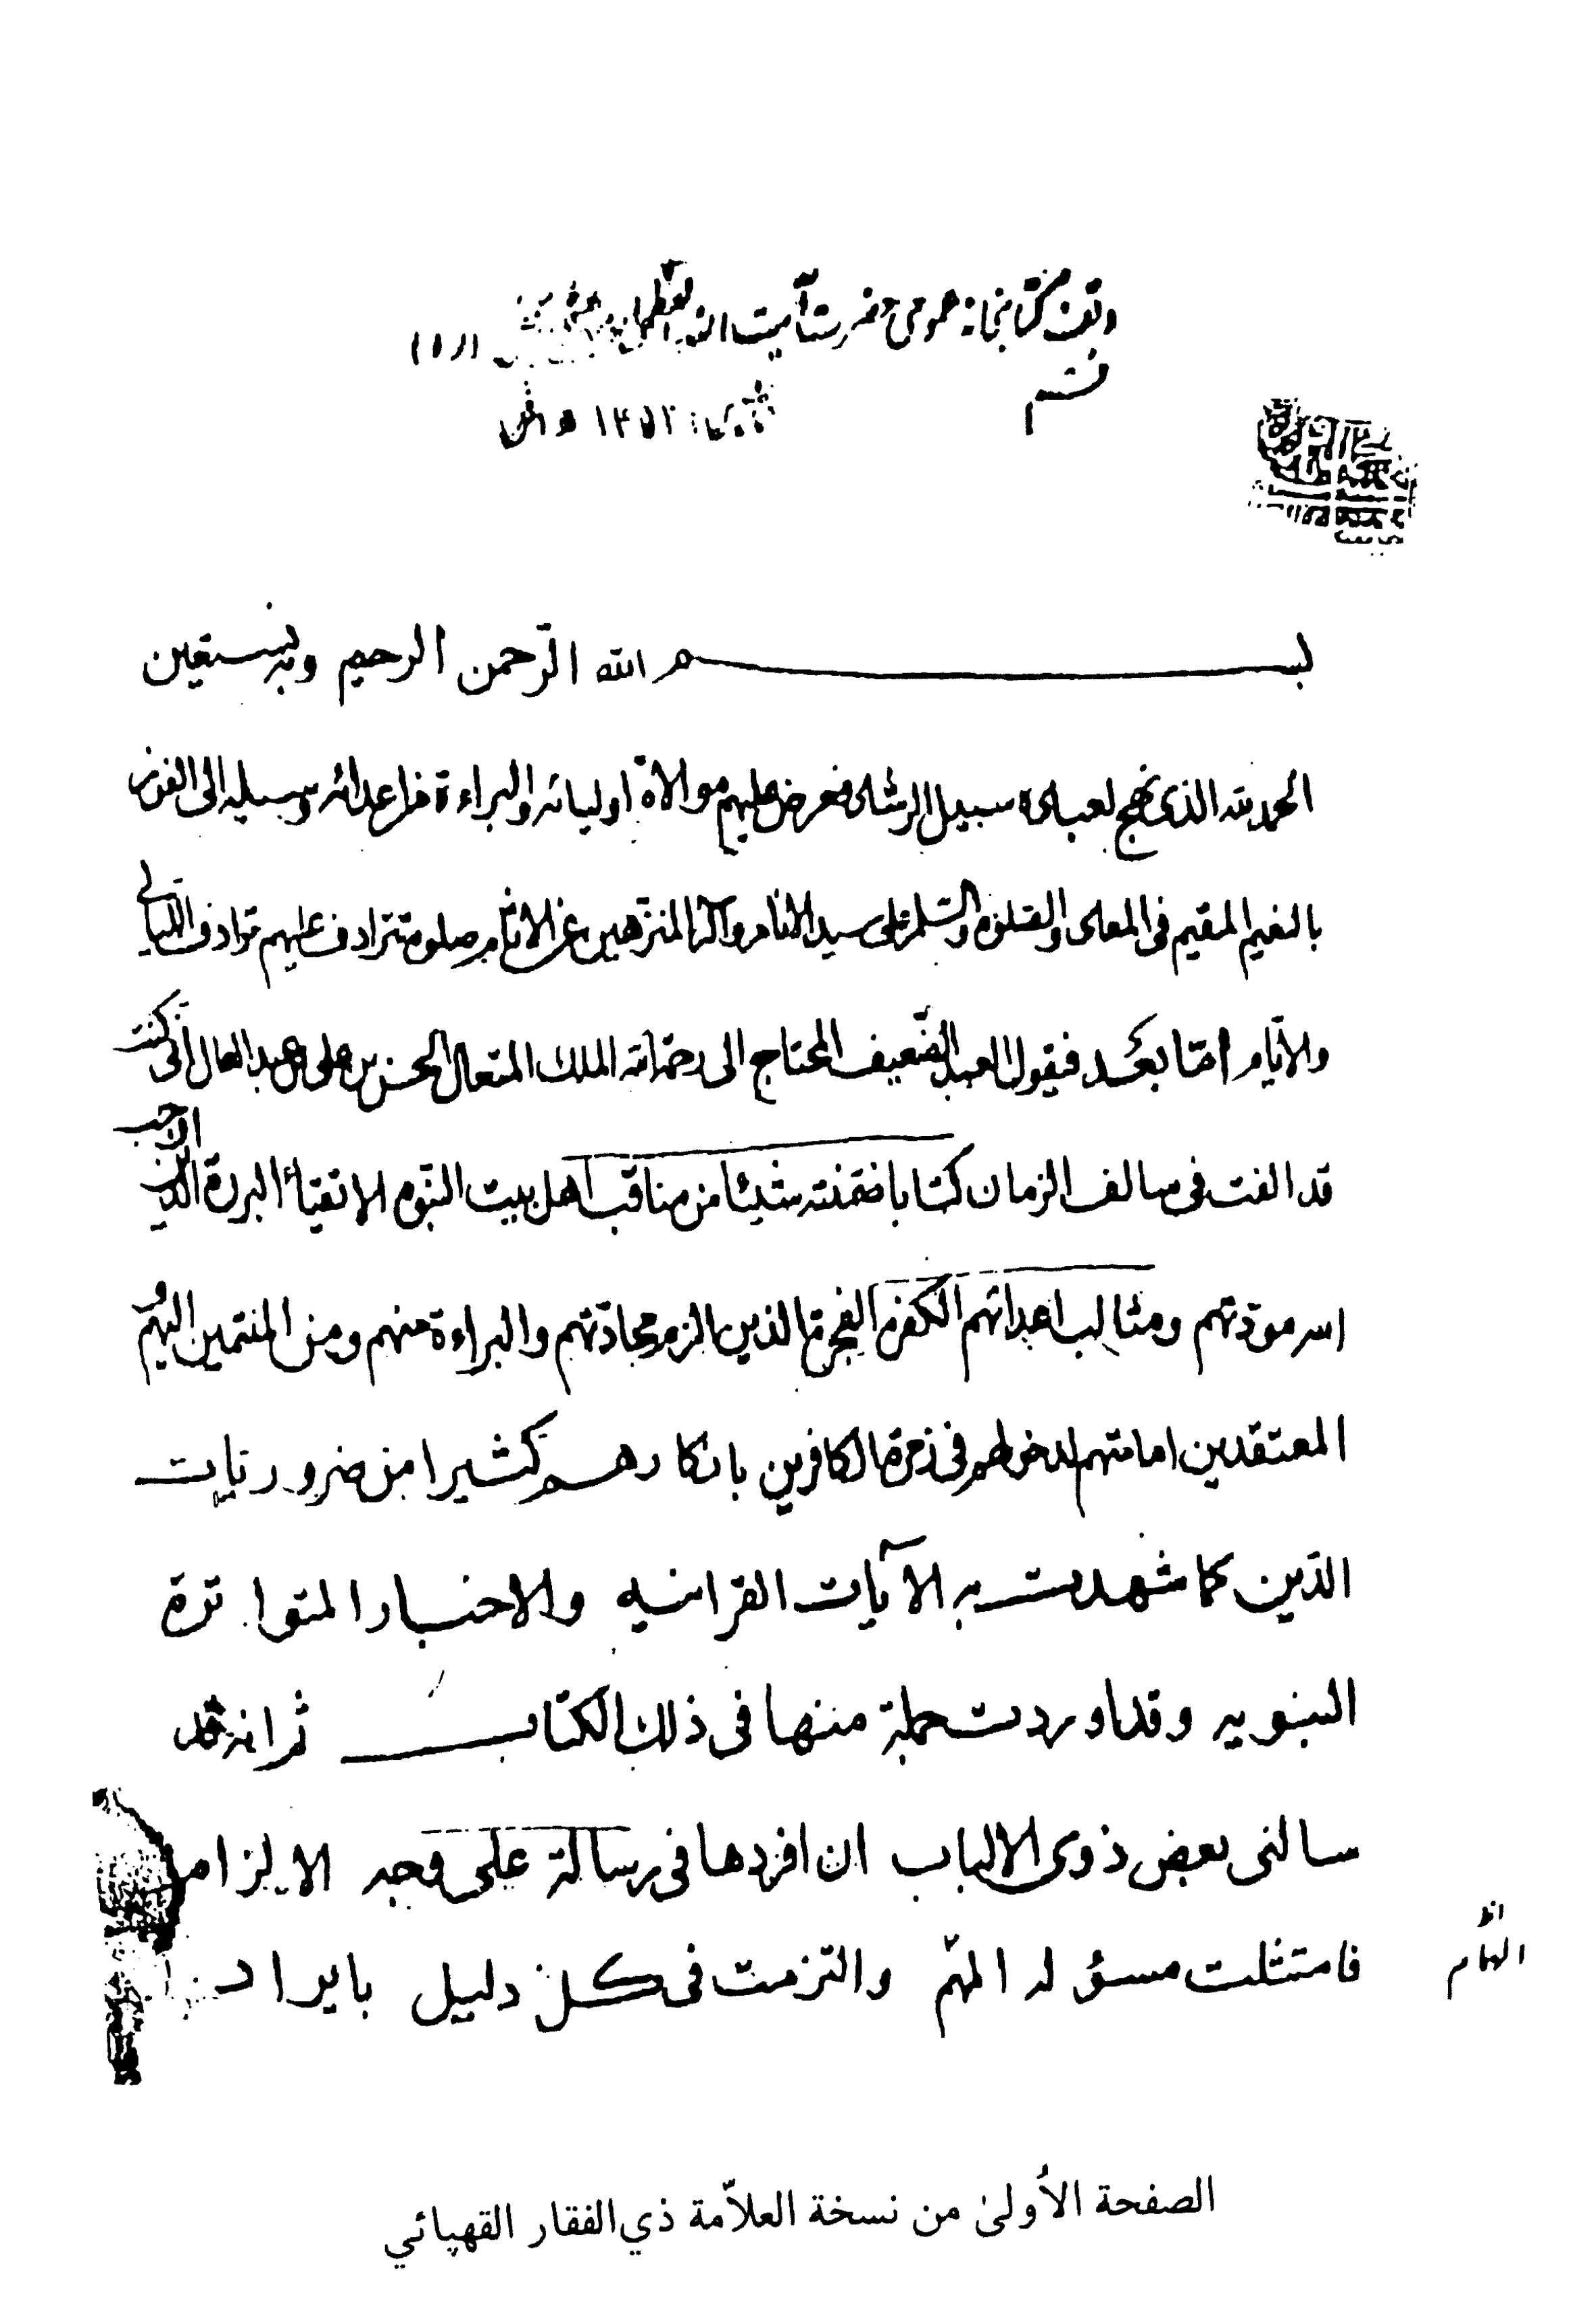 وقف كتابخانه عمومى حضرت آيت الله العظمى
قم
١٣٥٢
بسم الله الرّحمن الرحيم وبه نستعين
الحمد لله الذى نهج لعباده سبيل الرشاد وفرض عليهم موالاة اوليائه والبراءة من اعدائه وسيله الى الفوز
بالنعيم المقيم فى المعاد والصلوة والسلم على سيد الانام وآله المنزهين عن الاثام صلوة تترادف عليهم ترادف الليالى
والايّام امّا بعد فيقول العبد الضّعيف المحتاج الى رحمة الله الملك المتعال الحسن بن على بن عبد العال انى كنت
قد الفت فى سالف الزمان كتابا ضمنته شيئا من مناقب اهل بيت النبوة الاتقيآء البررة الذين اوجب
الله مودتهم ومثالب اعدائهم الكفرة الفجرة الذين الزم محادتهم والبراءة منهم ومن المنتمين اليهم و
المعتقدين امامتهم لدخولهم فى زمرة الكافرين بانكارهم كثيرا من ضروريات
الدّين كما شهدت به الآيات القرانيه والاخبار المتواترة
النبويه وقد اوردت جملة منها فى ذلك الكتاب ثم انه قد
سالنى بعض ذوى الالباب ان افردها فى رسالة على وجه الالزام
فامتثلت مسؤله المهّم والتزمت فى كل دليل بايراد
الصفحة الأولىٰ من نسخة العلاّمة ذي الفقار القهپائي